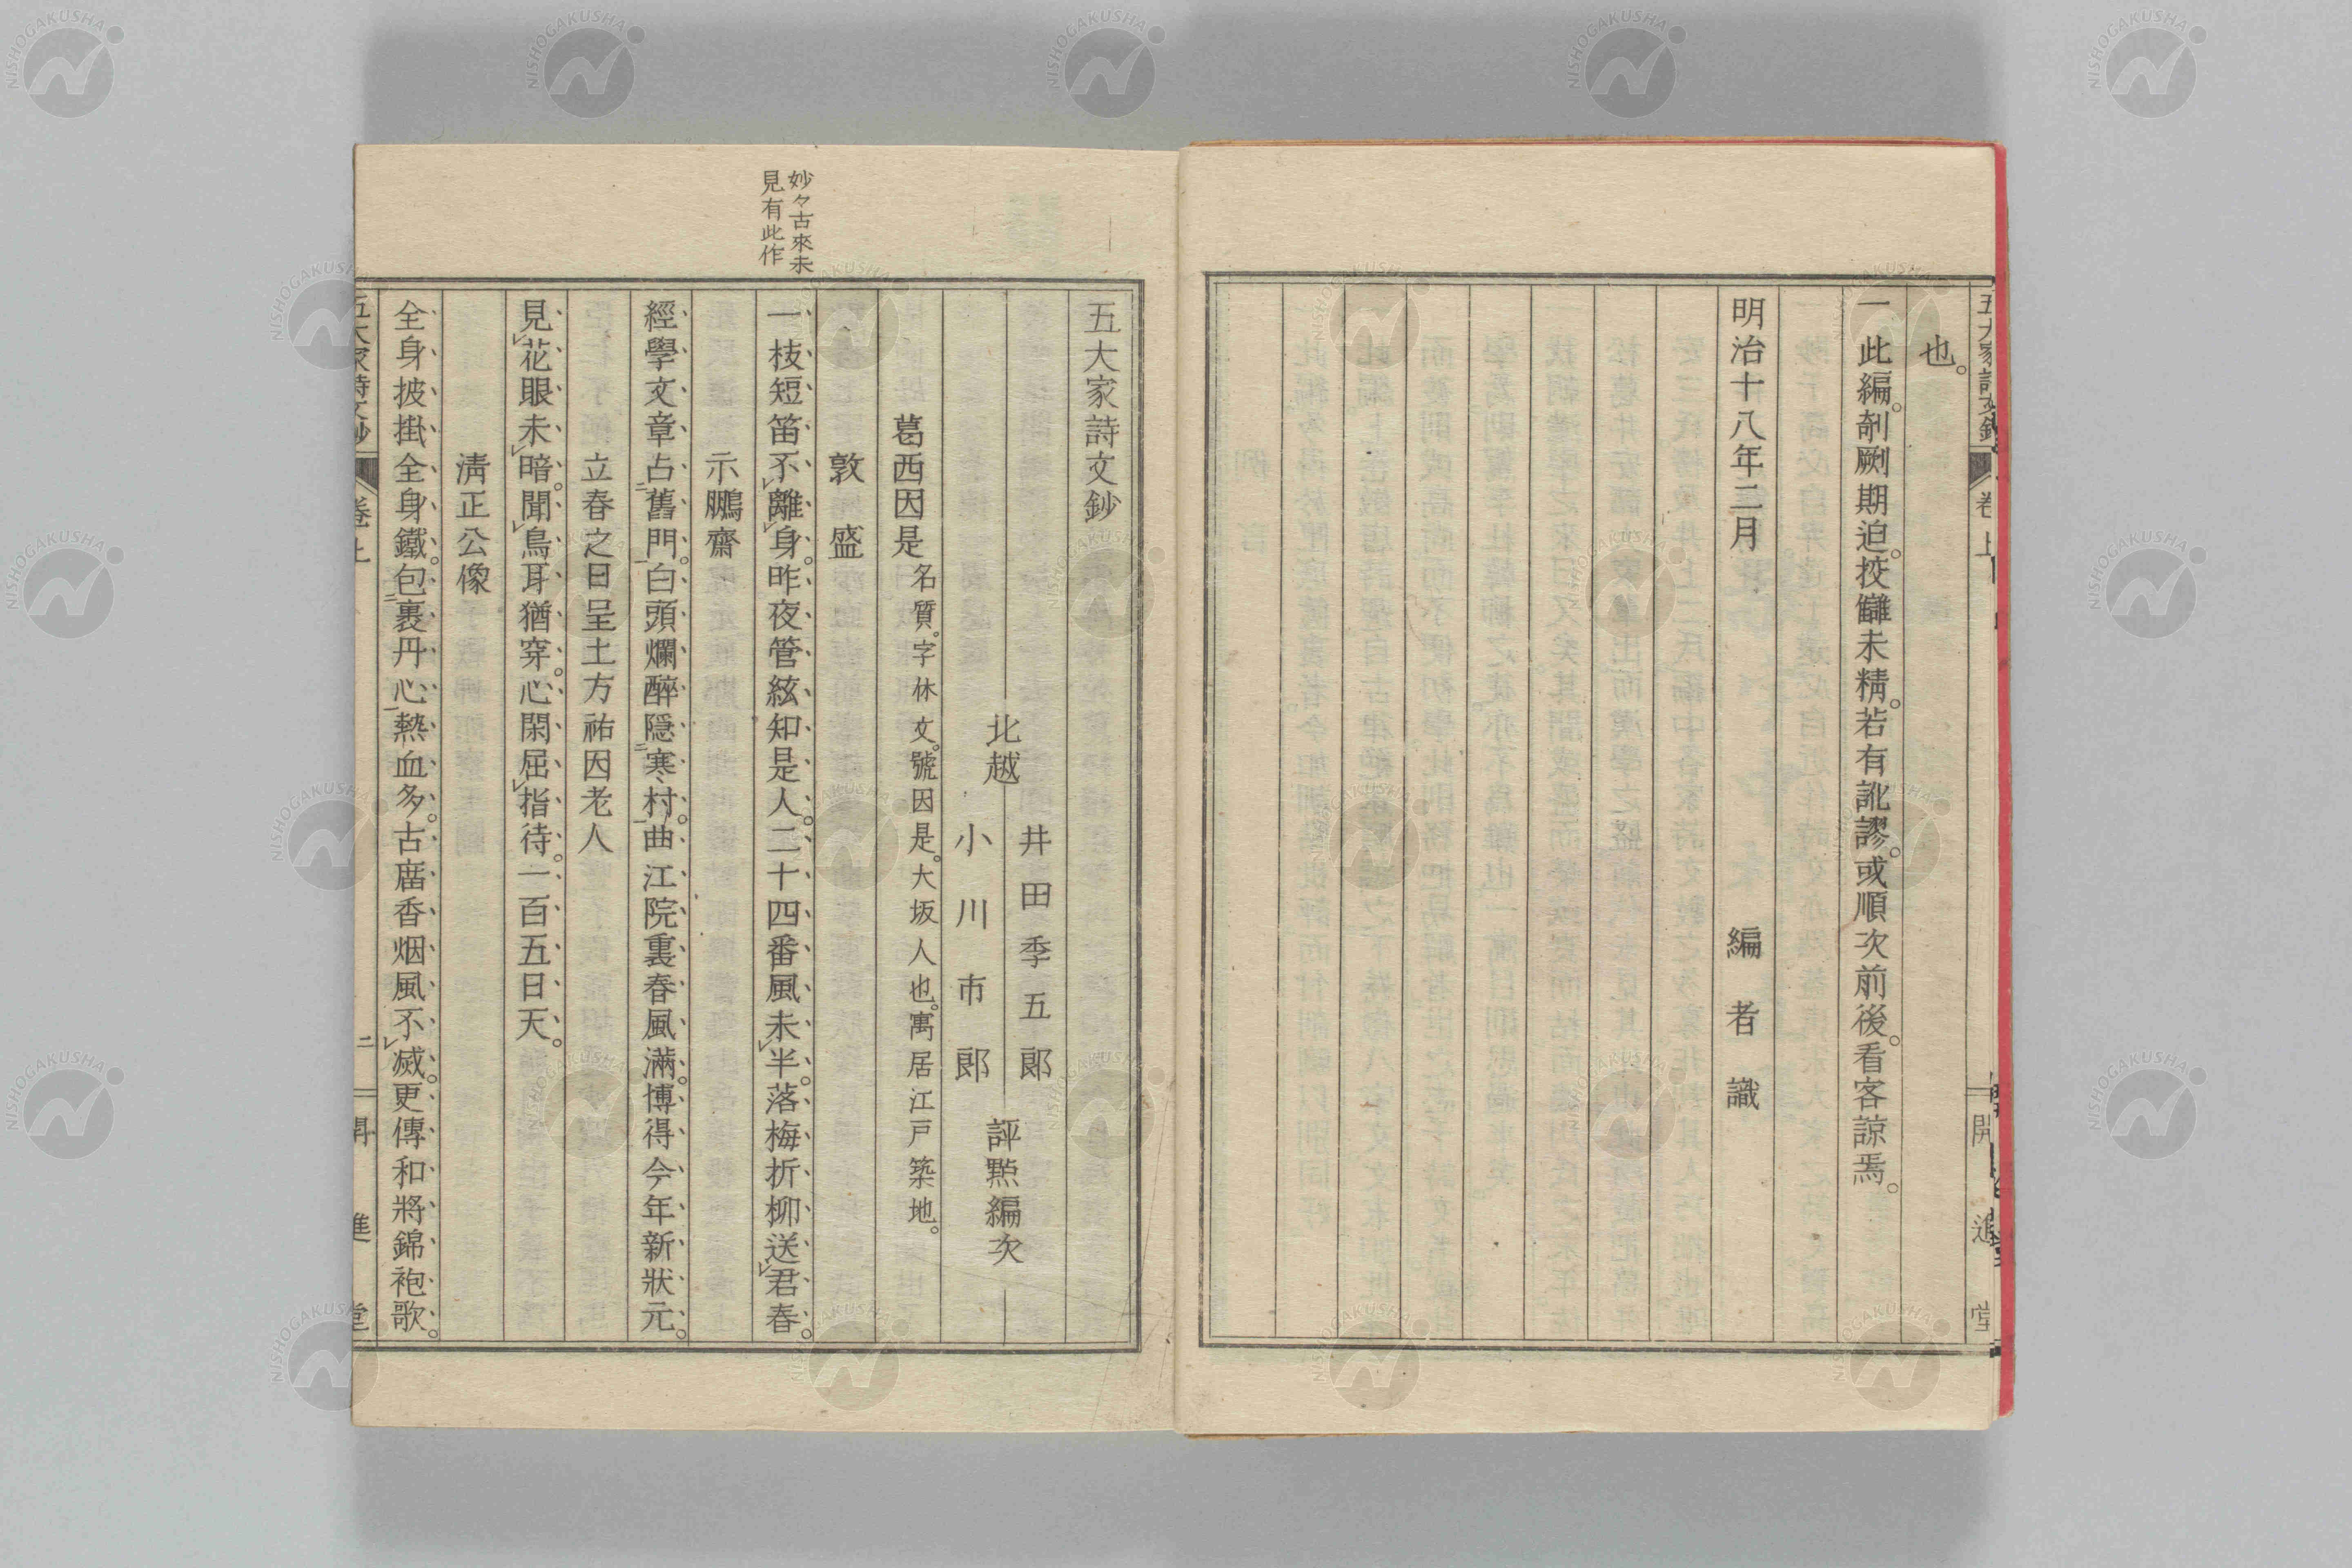 也。
一此編。剞劂期迫。挍讎未精。若有訛謬。或順次前後。看客諒焉。
明治十八年二月
編者識
五大家詩文鈔
北越
井田季五郎
小川市郎
評㸃編次
葛西因是名質。字休文。號因是。大坂人也。寓居江戸築地。
敦盛
妙々古來未
見有此作
一枝短笛不離身。昨夜管絃知是人。二十四番風未半。落梅折柳送君春。
示鵬齋
經學文章占舊門。白頭爛醉隱寒村。曲江院裏春風滿。博得今年新狀元。
立春之日呈土方祐因老人
見花眼未暗。聞鳥耳猶穿。心閑屈指待。一百五日天。
淸正公像
全身披掛全身鐵。包裹丹心熱血多。古廟香烟風不滅。更傳和將錦袍歌。
卷上
二
開進堂
NISHOGAKUSHA